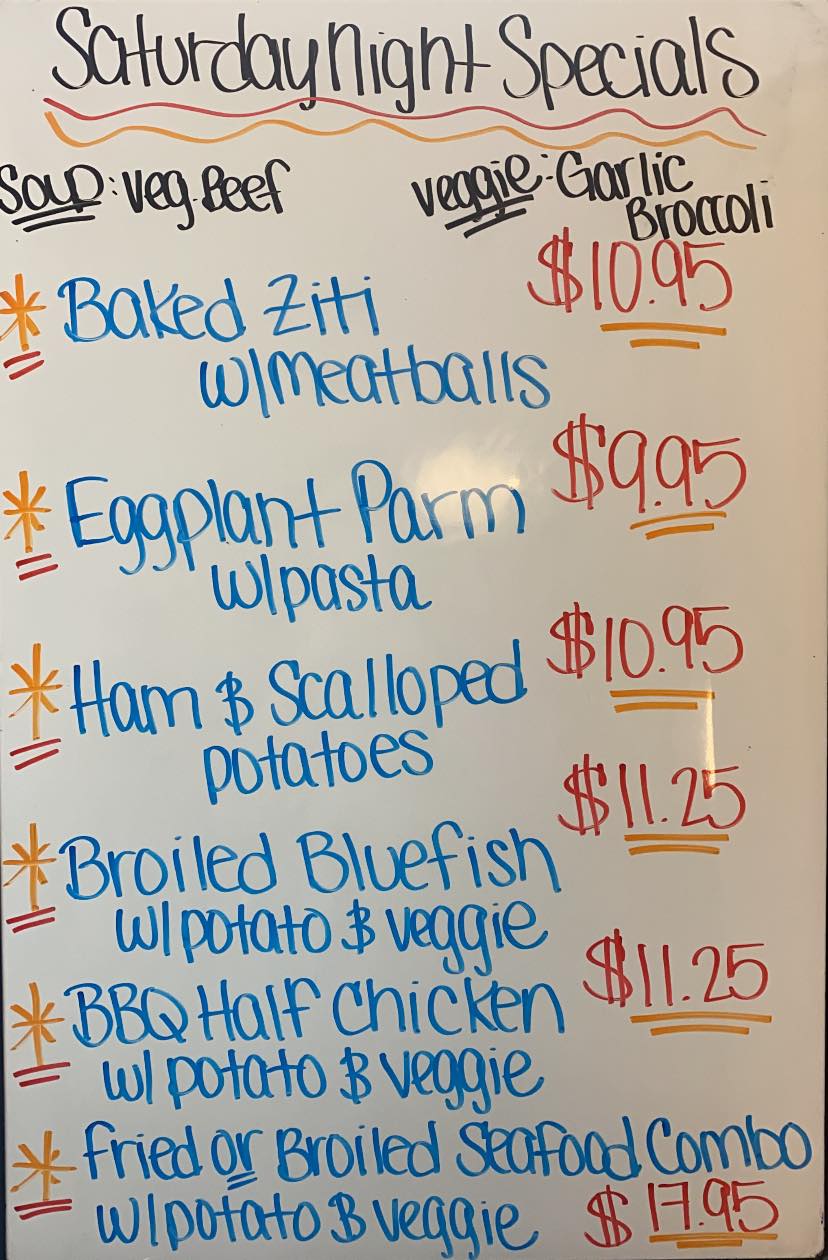 Saturday Night Specials
Soup: Veg. Beef
Veggie: Garlic
Broccoli
* Baked Ziti $10.95
w/meatballs
* Eggplant Parm $9.95
w/pasta
* Ham & Scalloped $10.95
potatoes
* Broiled Bluefish $11.25
w/potato & veggie
* BBQ Half Chicken $11.25
w/potato & veggie
* Fried or Broiled Seafood Combo
w/potato & veggie $17.95